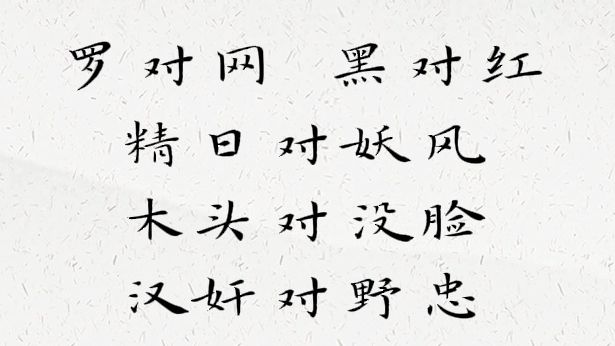 罗对网 黑对红
精日对妖风
木头对没脸
汉奸对野忠